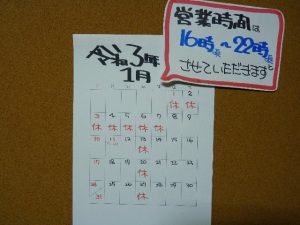 営業時間は
16時~22時
させていただきます
令和3年
1月
1 2
休 休
3 4 5 6 7 8 9
休 休 休 休 休
10 11 12 13 14 15 16
休
17 18 19 20 21 22 23
休
24/31 25 26 27 28 29 30
休